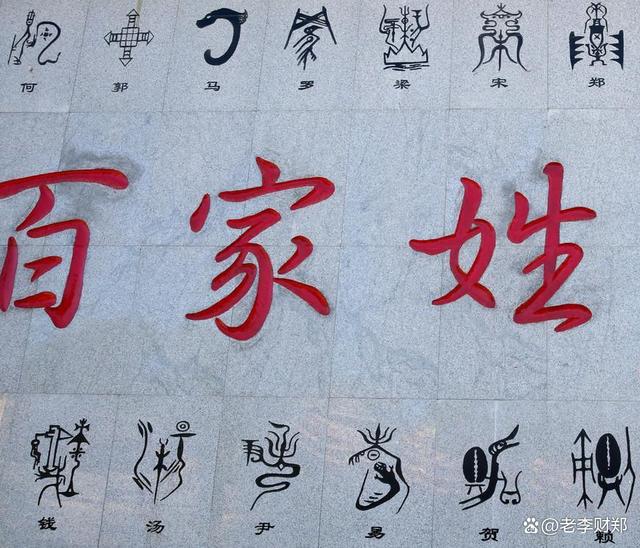 何 郭 马 罗 梁 宋 郑
百家姓
钱 汤 尹 易 贺 赖
@老李财郑